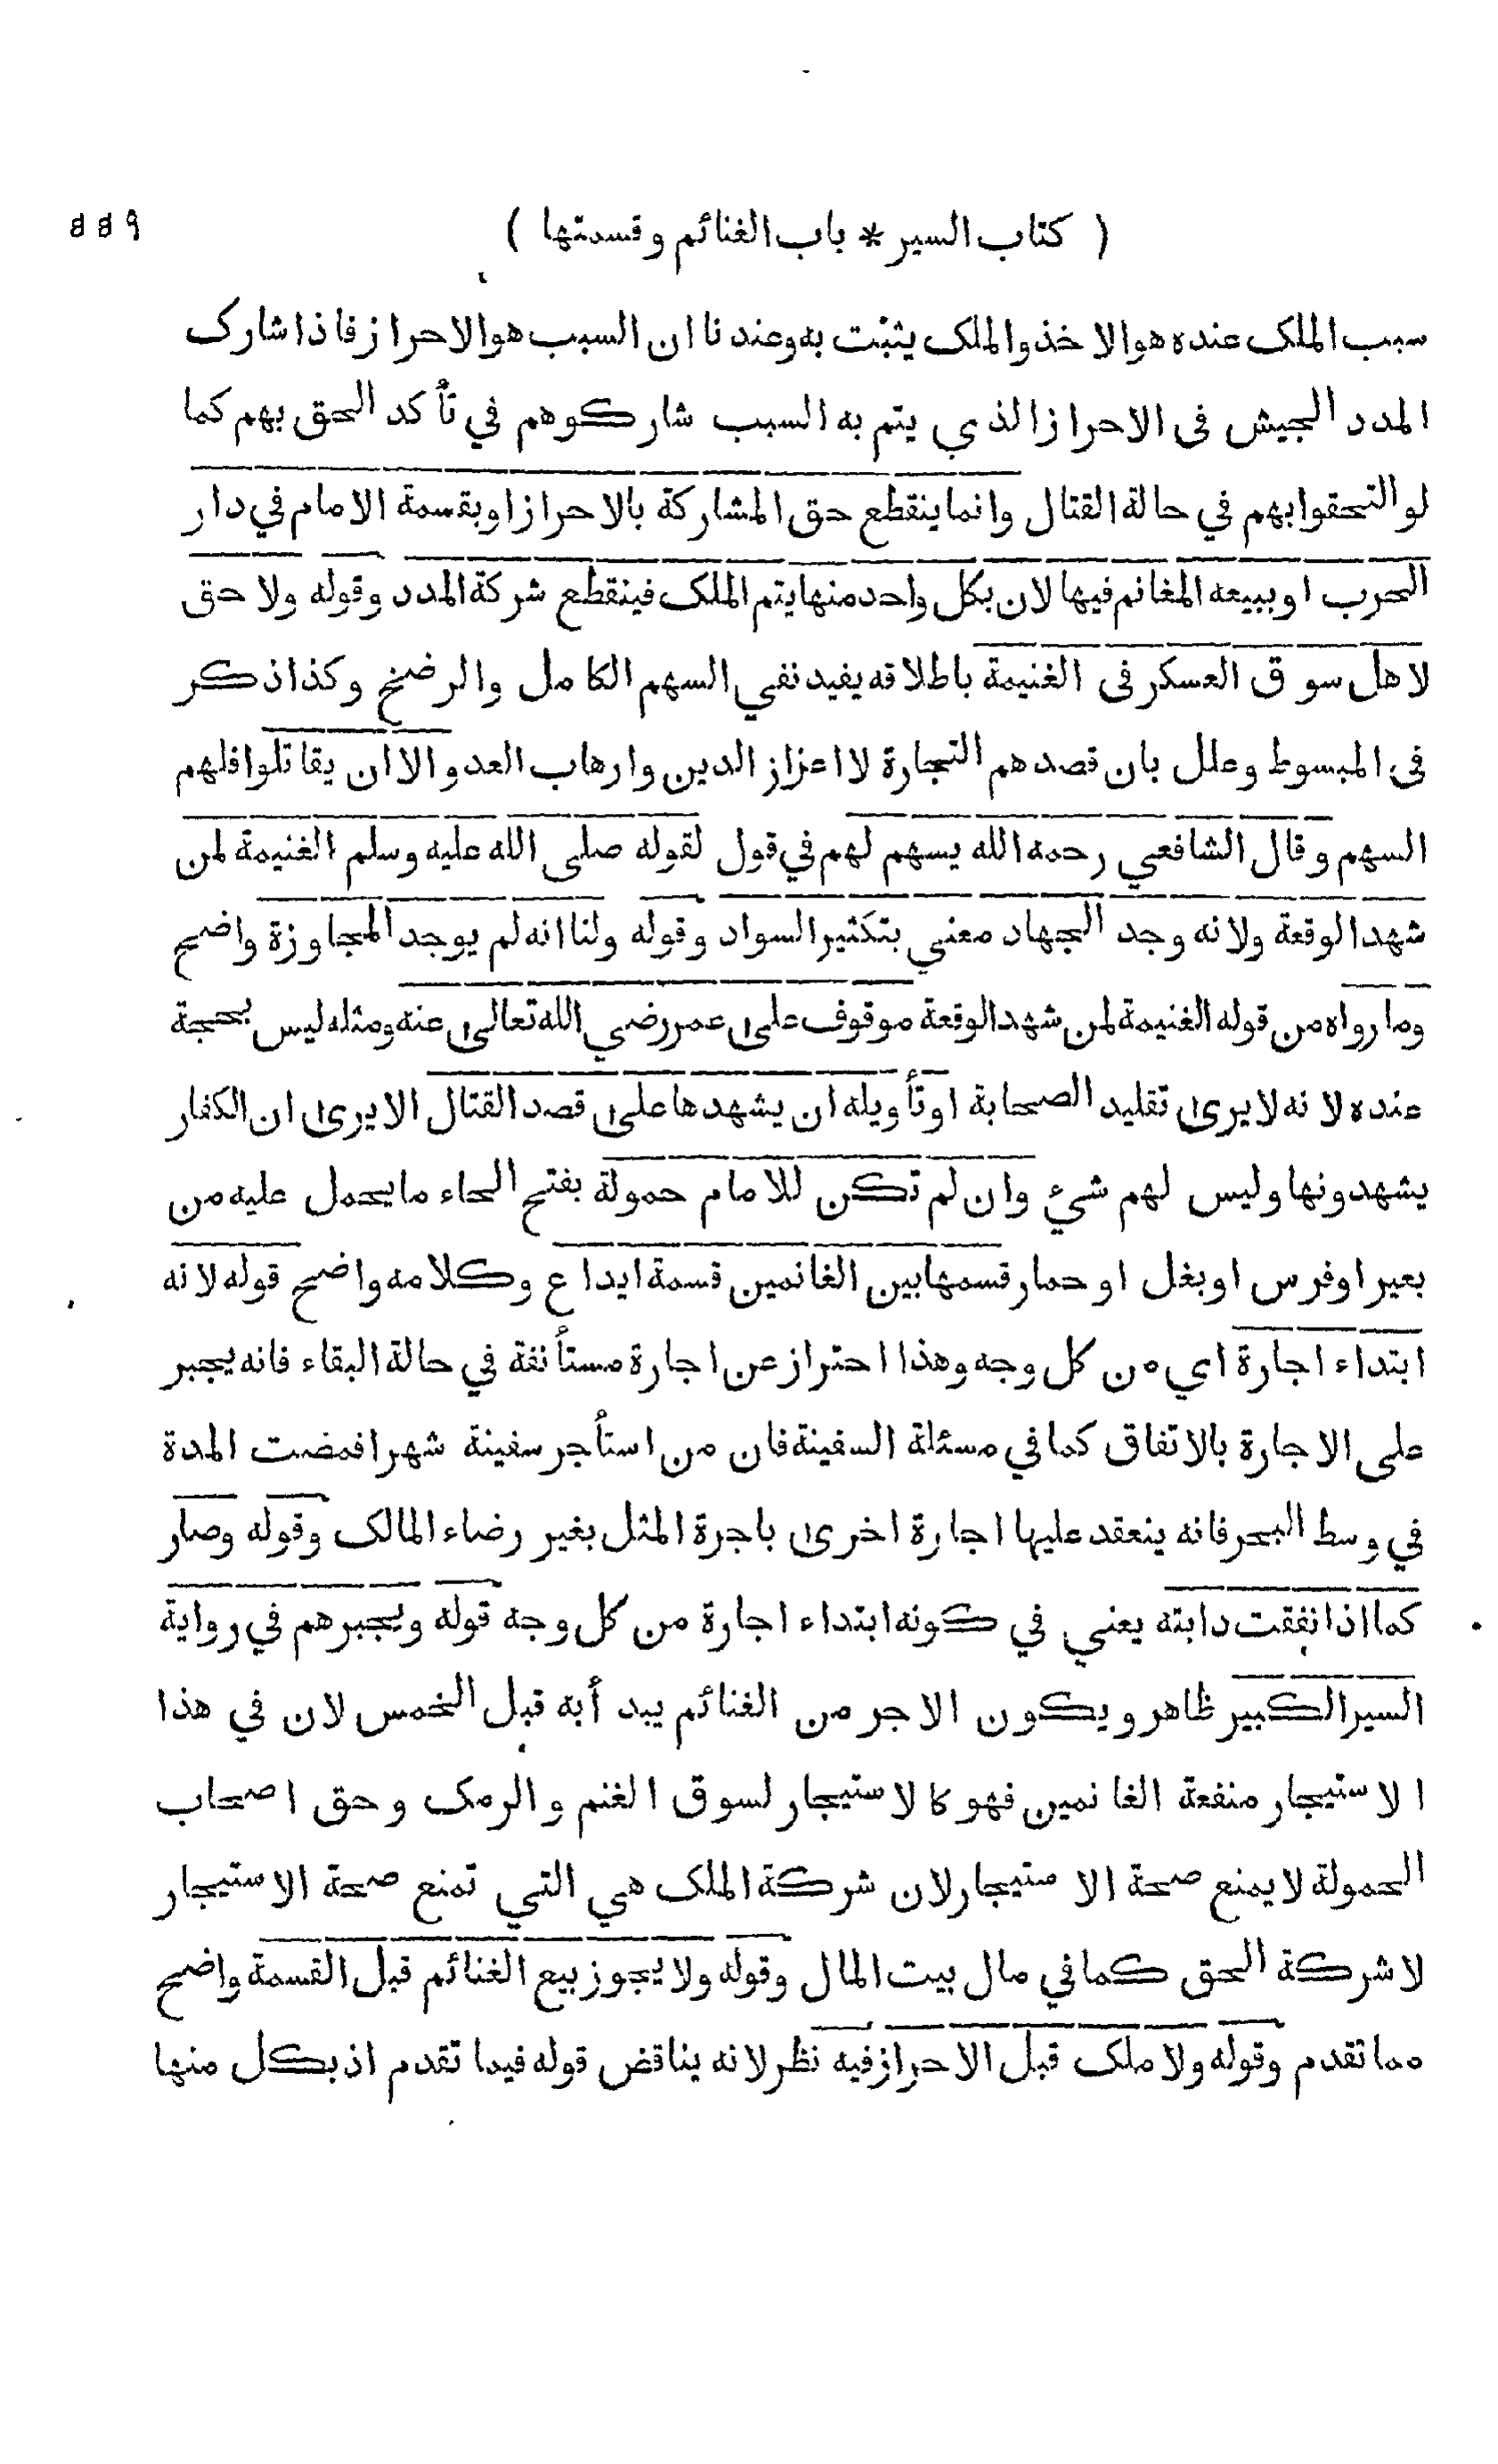 ( كتاب السير * باب الغنائم وقسمتها )
سبب الملك عنده هو الاخذ والملك يثبت به وعندنا ان السبب هو الاحراز فاذا شارك
المدد الجيش فى الاحراز الذي يتم به السبب شاركوهم في تأكد الحق بهم كما
لو التحقوا بهم في حالة القتال وانما ينقطع حق المشاركة بالاحراز او بقسمة الامام في دار
الحرب او ببيعه المغانم فيها لان بكل واحد منها يتم الملك فينقطع شركة المدد وقوله ولا حق
لاهل سوق العسكر فى الغنيمة باطلاقه يفيد نفي السهم الكامل والرضخ وكذا ذكر
فى المبسوط وعلل بان قصدهم التجارة لا اعزاز الدين وارهاب العدو الا ان يقاتلوا فلهم
السهم وقال الشافعي رحمه الله يسهم لهم في قول لقوله صلى الله عليه وسلم الغنيمة لمن
شهد الوقعة ولانه وجد الجهاد معني بتكثير السواد وقوله ولنا انه لم يوجد المجاوزة واضح
وما رواه من قوله الغنيمة لمن شهد الوقعة موقوف على عمر رضي الله تعالى عنه ومثله ليس بحجة
عنده لانه لا يرى تقليد الصحابة او تأويله ان يشهدها على قصد القتال الا يرى ان الكفار
يشهدونها وليس لهم شيء وان لم تكن للامام حمولة بفتح الحاء ما يحمل عليه من
بعير او فرس او بغل او حمار قسمها بين الغانمين قسمة ايداع وكلامه واضح قوله لانه
ابتداء اجارة اي من كل وجه وهذا احتراز عن اجارة مستأنفة في حالة البقاء فانه يجبر
على الاجارة بالاتفاق كما في مسئلة السفينة فان من استأجر سفينة شهرا فمضت المدة
في وسط البحر فانه ينعقد عليها اجارة اخرى باجرة المثل بغير رضاء المالك وقوله وصار
كما اذا نفقت دابته يعني في كونه ابتداء اجارة من كل وجه قوله ويجبرهم في رواية
السير الكبير ظاهر ويكون الاجر من الغنائم يبدأ به قبل الخمس لان في هذا
الاستيجار منفعة الغانمين فهو كالاستيجار لسوق الغنم والرمك وحق اصحاب
الحمولة لا يمنع صحة الاستيجار لان شركة الملك هي التي تمنع صحة الاستيجار
لا شركة الحق كما في مال بيت المال وقوله ولا يجوز بيع الغنائم قبل القسمة واضح
مما تقدم وقوله ولا ملك قبل الاحراز فيه نظر لانه يناقض قوله فيما تقدم اذ بكل منها